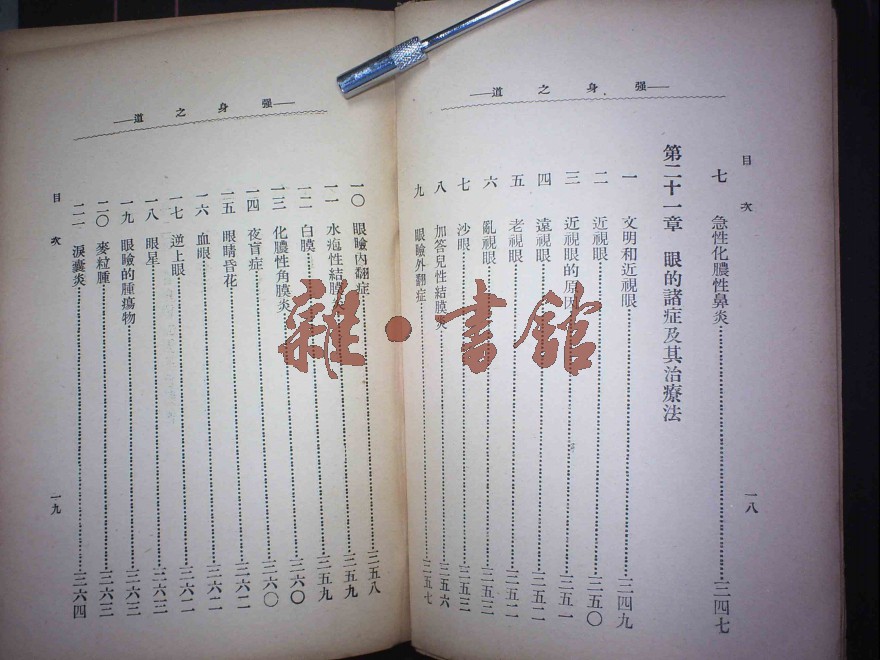 —道 之 身 強—
目 次
七 急性化膿性鼻炎……三四七
第二十一章 眼的諸症及其治療法
一 文明和近視眼……三四九
二 近視眼……三五〇
三 近視眼的原因……三五一
四 遠視眼……三五二
五 老視眼……三五二
六 亂視眼……三五三
七 沙眼……三五三
八 加答兒性結膜炎……三五六
九 眼瞼外翻症……三五七
一八
—道 之 身 強—
一〇 眼瞼內翻症……三五八
一一 水疱性結膜炎……三五九
一二 白膜……三五九
一三 化膿性角膜炎……三六〇
一四 夜盲症……三六〇
一五 眼睛昏花……三六二
一六 血眼……三六二
一七 逆上眼……三六二
一八 眼星……三六三
一九 眼瞼的腫瘍物……三六三
二〇 麥粒腫……三六三
二一 淚囊炎……三六四
目 次
一九
雜·書館